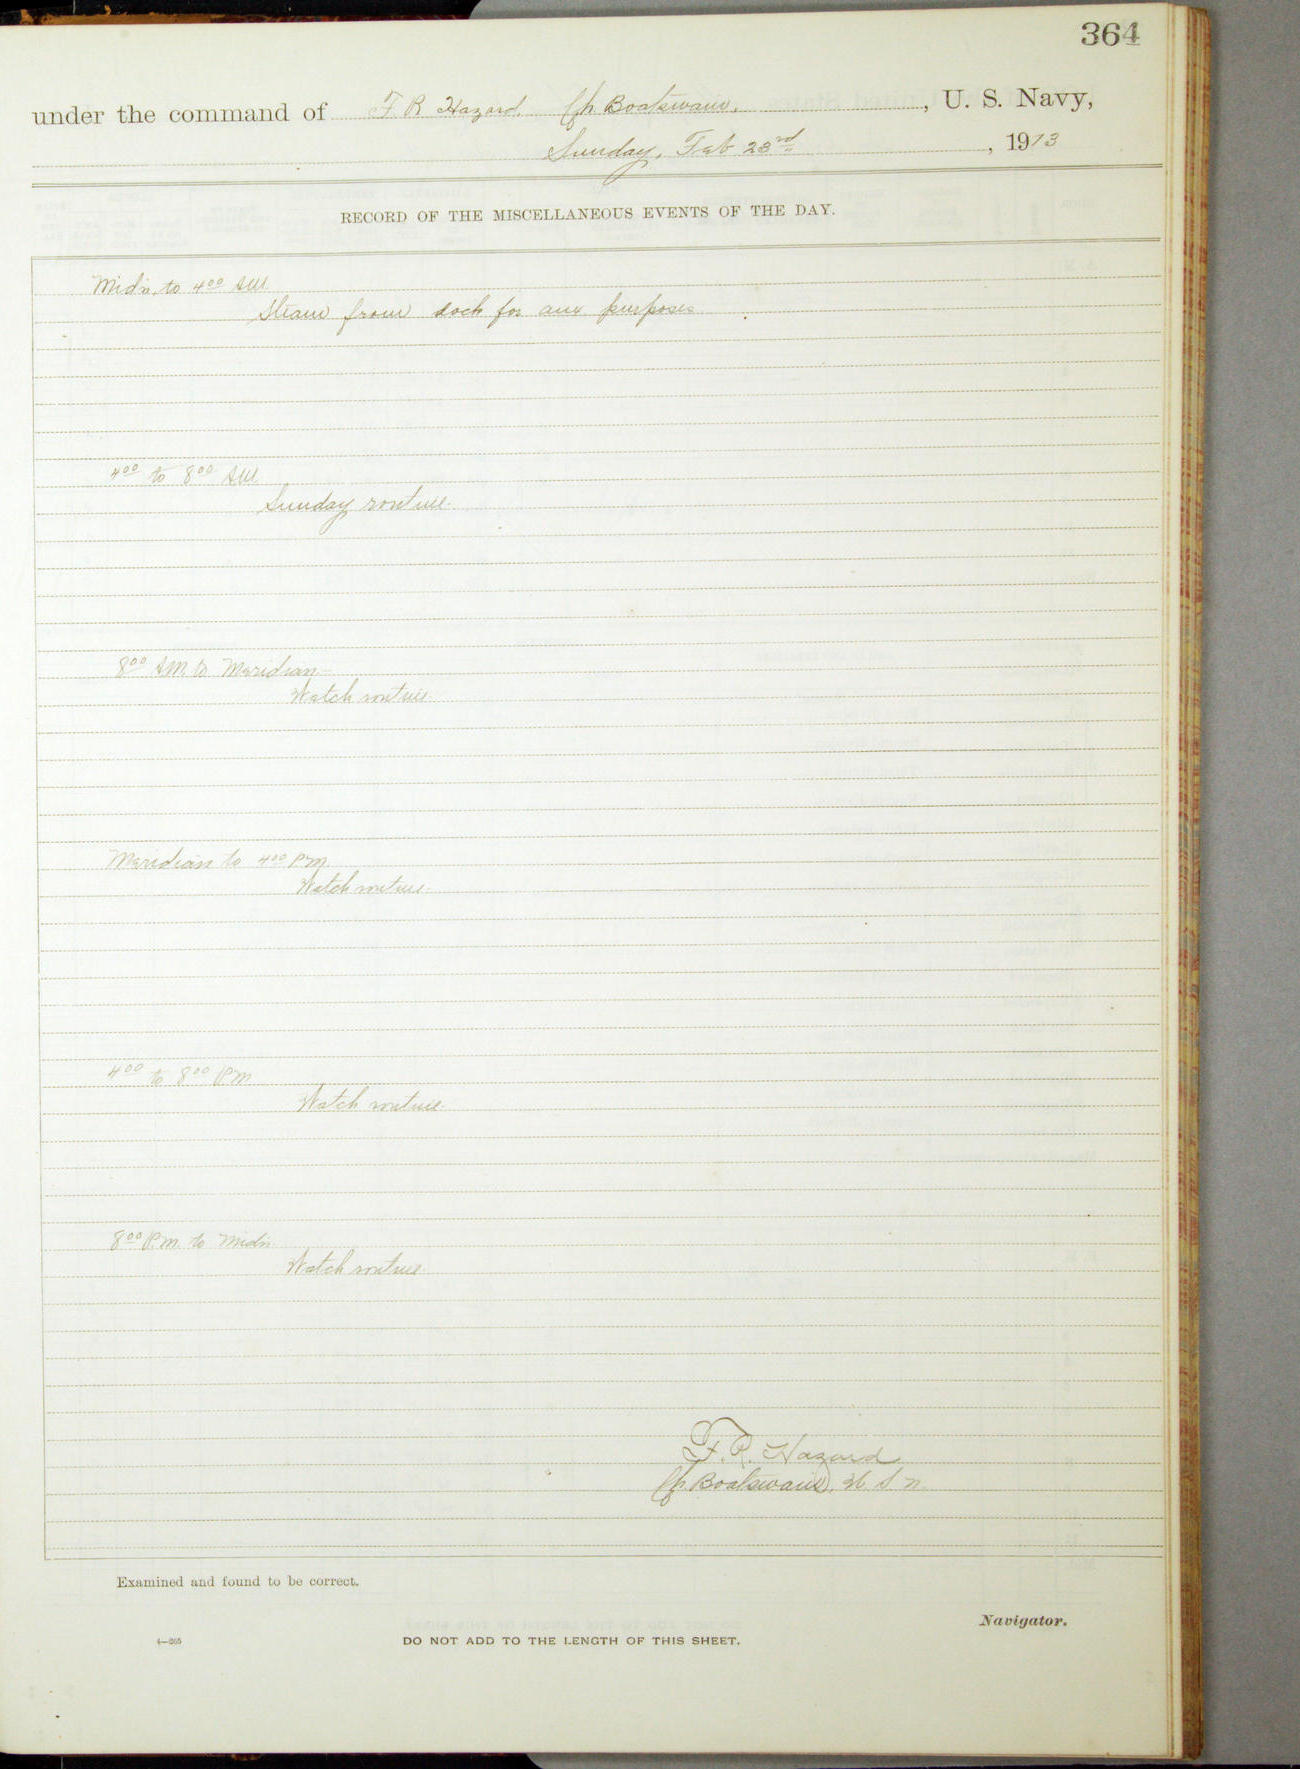 364
under the command of F. R. Hazard, Ch Boatswain, , U. S. Navy,
Sunday, Feb 23rd , 1913
RECORD OF THE MISCELLANEOUS EVENTS OF THE DAY.
Midn. to 4⁰⁰ AM
Steam from dock for aux purposes
4⁰⁰ to 8⁰⁰ AM
Sunday routine.
8⁰⁰ AM. to Meridian
Watch routine.
Meridian to 4⁰⁰ P.M.
Watch routine.
4⁰⁰ to 8⁰⁰ P.M.
Watch routine.
8⁰⁰ P.M. to Midn.
Watch routine.
F. R. Hazard
Ch Boatswain, U. S. N.
Examined and found to be correct.
Navigator.
4—265
DO NOT ADD TO THE LENGTH OF THIS SHEET.